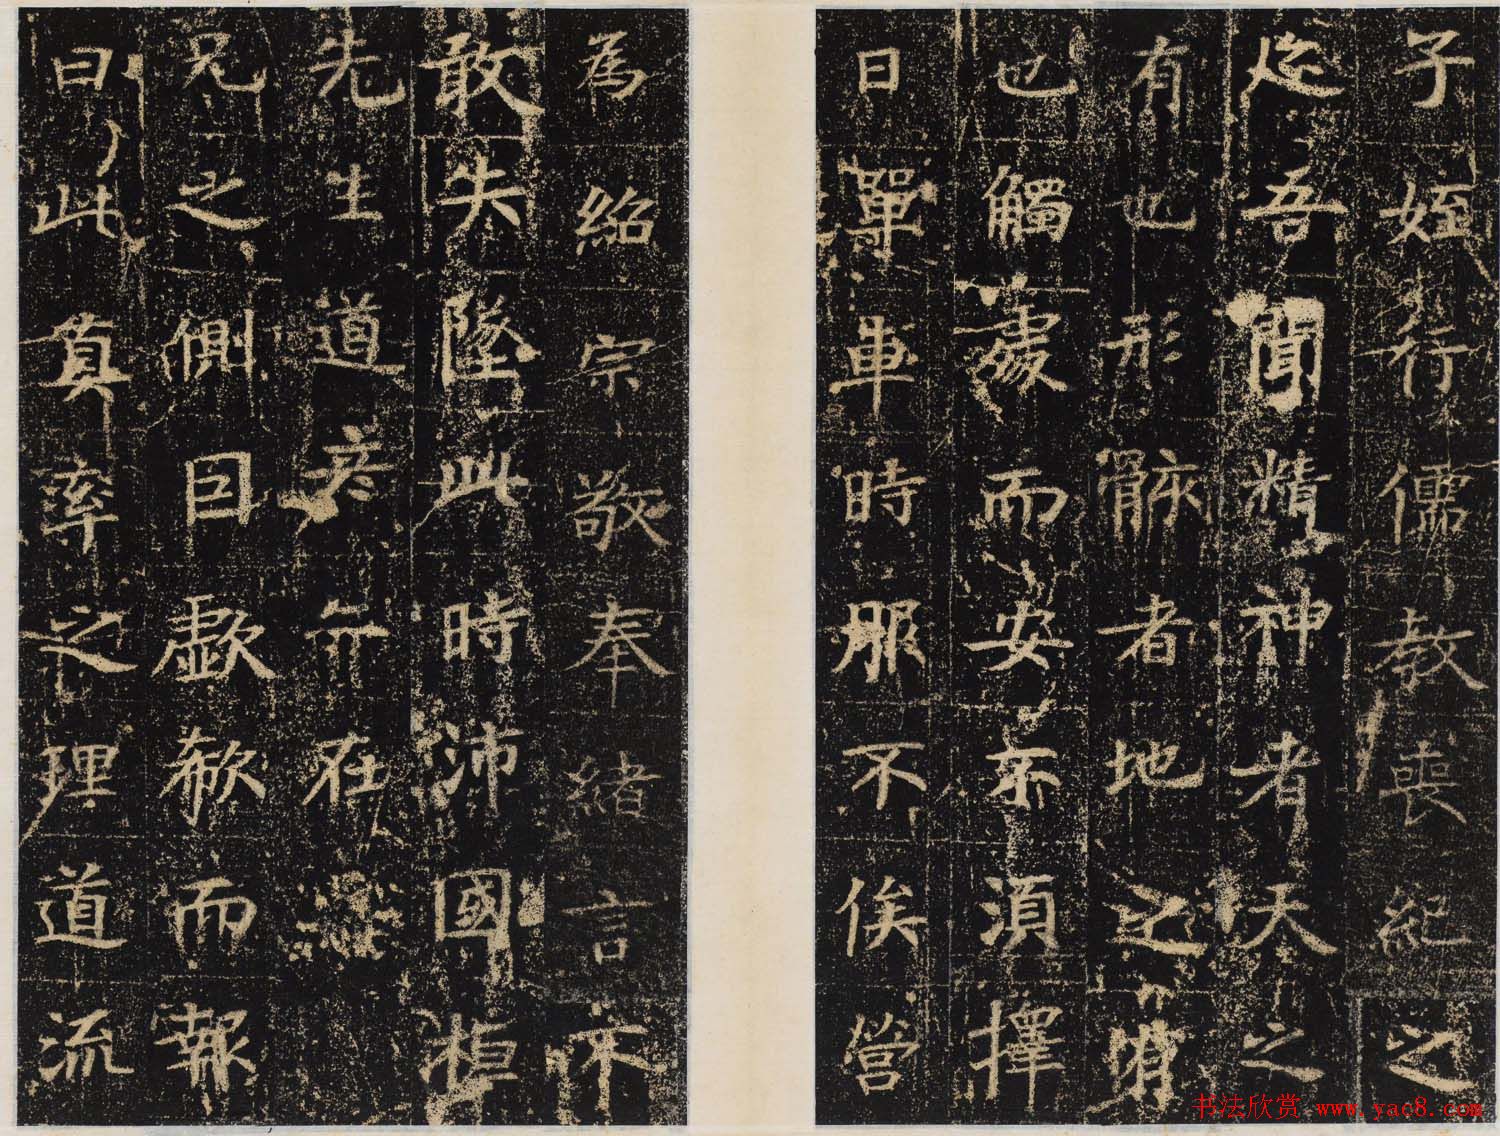 子姪行儒教喪紀之
迄吾聞精神者天之
有也形骸者地之有
也觸處而安不須擇
日單車時服不俟營
為紹宗敬奉緒言不
敢失墜此時沛國桓
先生道彥亦在
兄之側因歔欷而報
曰此真率之理道流
书法欣赏 www.yac8.com